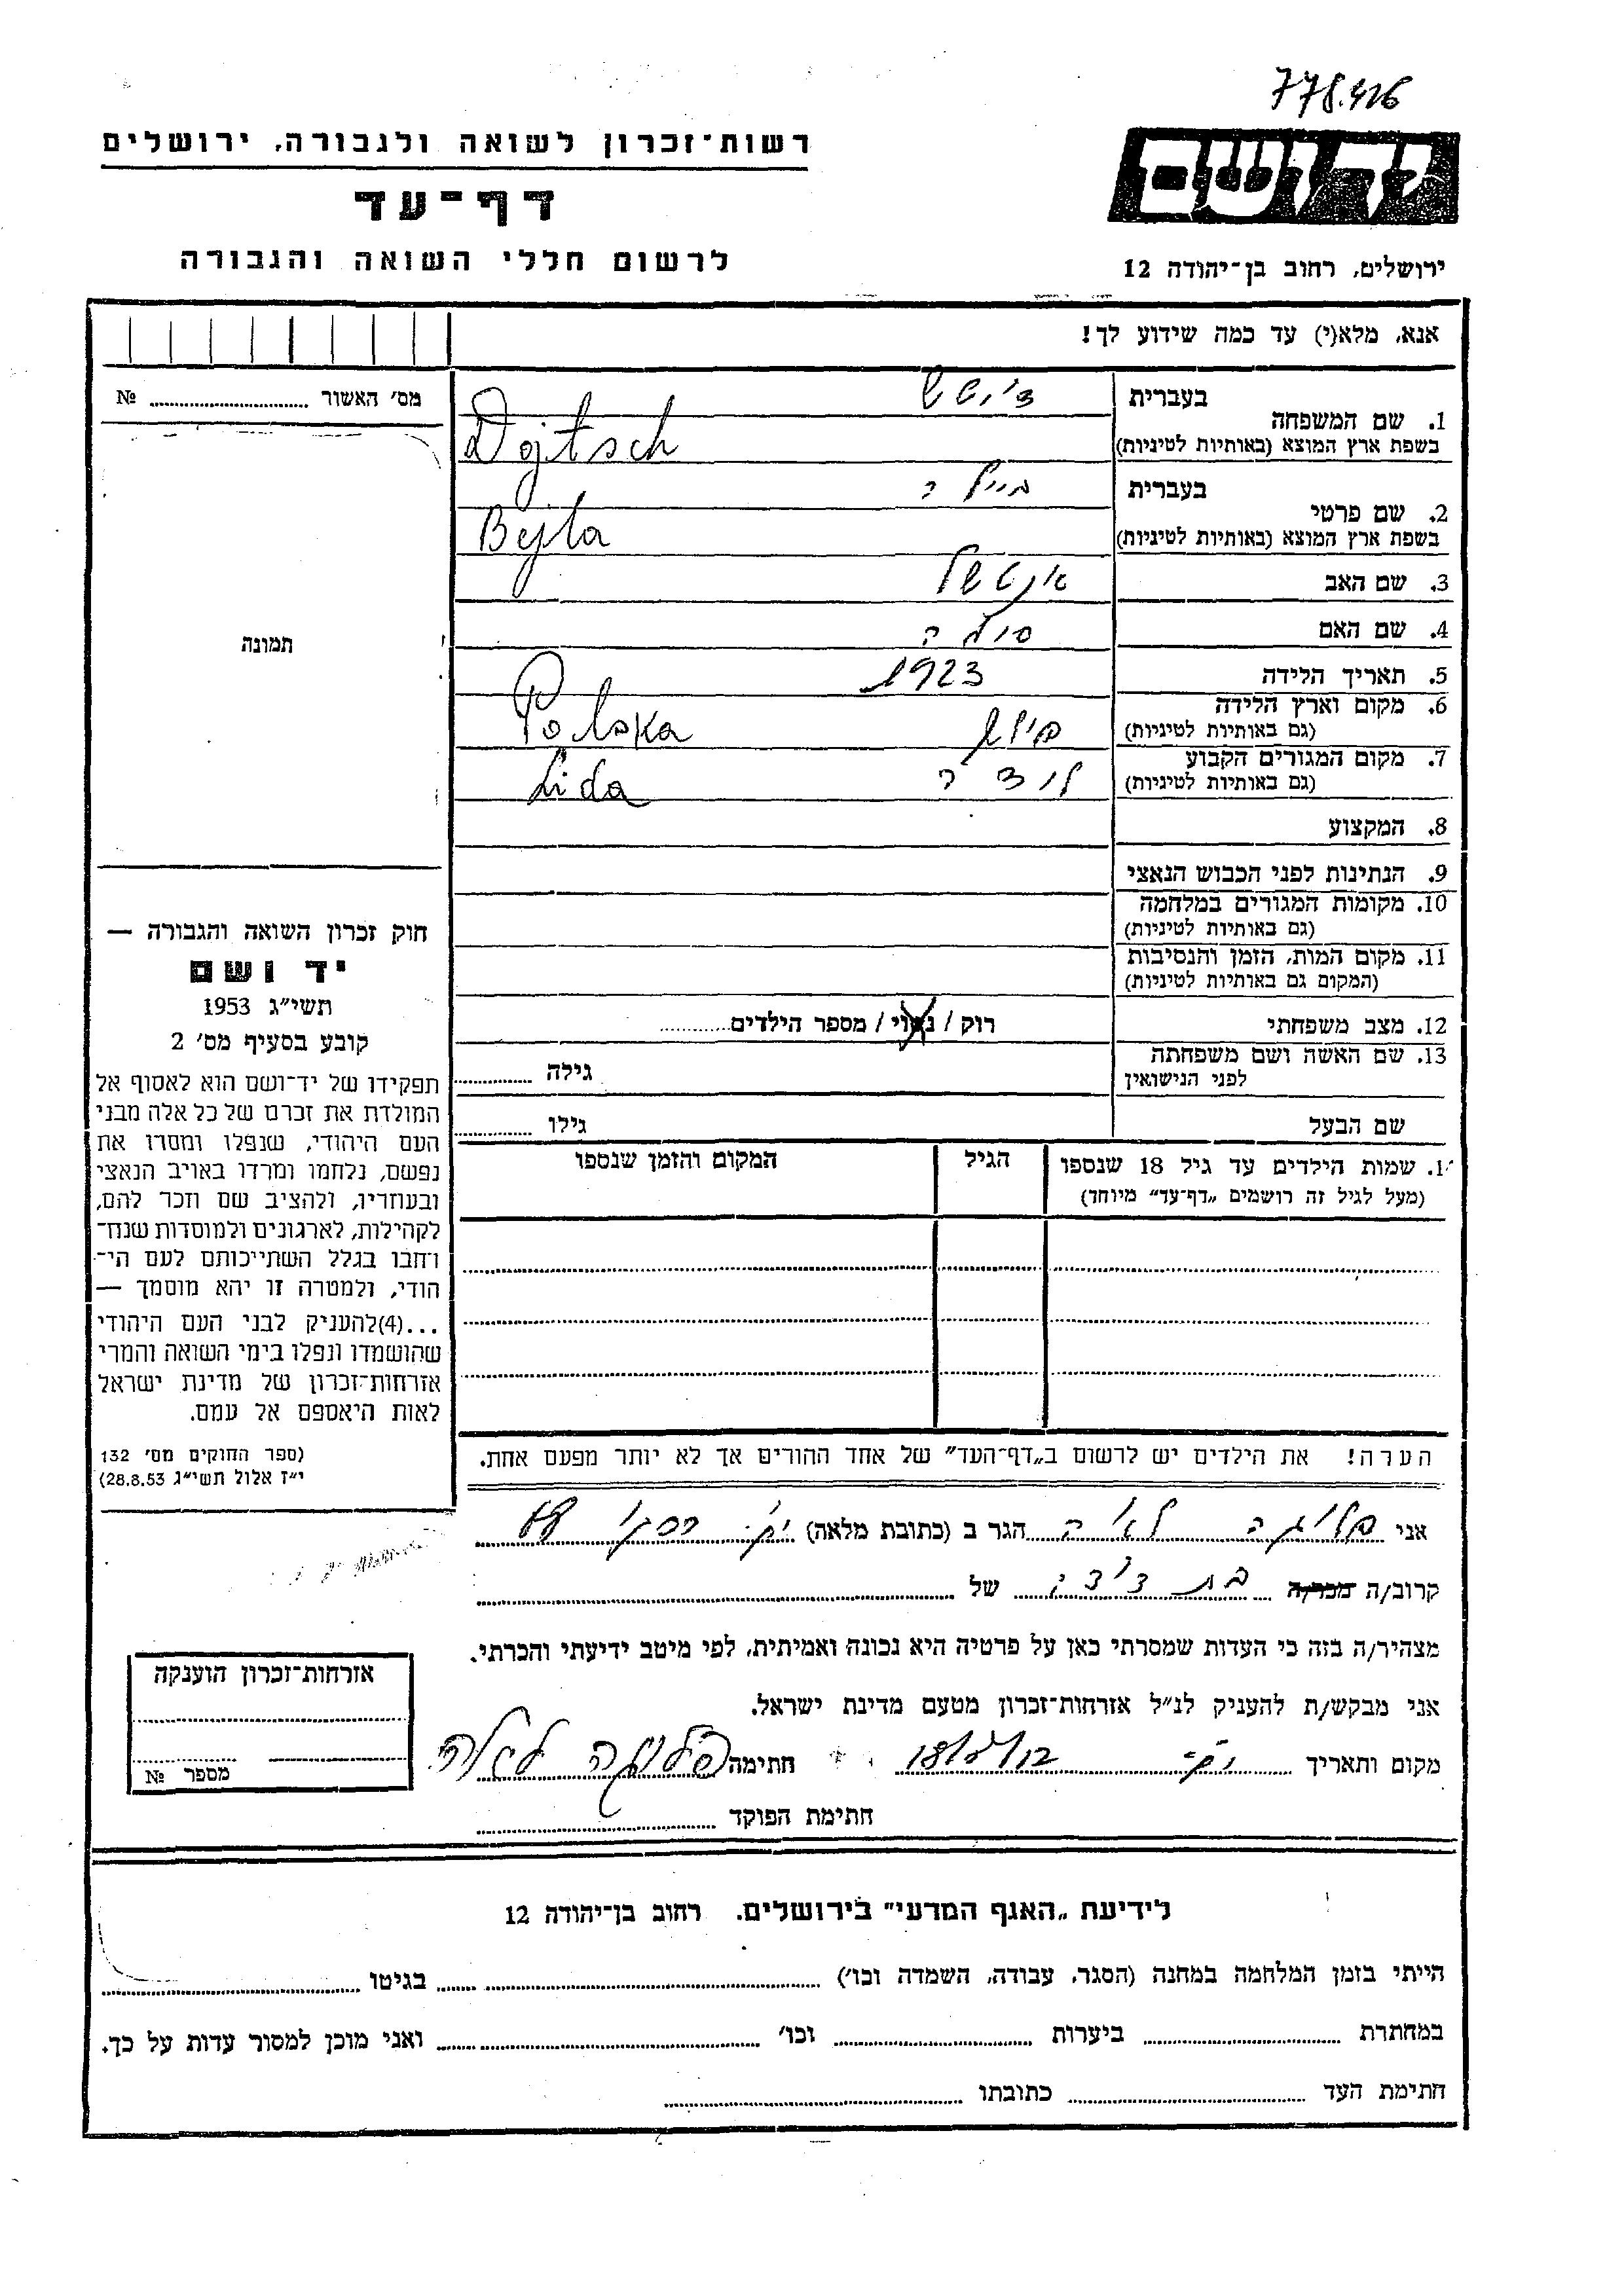 778.426
רשות־זכרון לשואה ולגבורה, ירושלים
יד ושם
דף־עד
לרשום חללי השואה והגבורה
ירושלים, רחוב בן־יהודה 12
אנא, מלא(י) עד כמה שידוע לך!
מס׳ האשור № ........
1. שם המשפחה
בעברית דויטש
בשפת ארץ המוצא (באותיות לטיניות) Dojtsch
2. שם פרטי
בעברית ביילה
בשפת ארץ המוצא (באותיות לטיניות) Bejla
3. שם האב אנטשל
4. שם האם
5. תאריך הלידה 1923
6. מקום וארץ הלידה
(גם באותיות לטיניות) Polska
7. מקום המגורים הקבוע
(גם באותיות לטיניות) לידה Lida
8. המקצוע
9. הנתינות לפני הכבוש הנאצי
10. מקומות המגורים במלחמה
(גם באותיות לטיניות)
11. מקום המות, הזמן והנסיבות
(המקום גם באותיות לטיניות)
12. מצב משפחתי רוק / נשוי / מספר הילדים........
13. שם האשה ושם משפחתה
לפני הנישואין
גילה ........
שם הבעל גילו ........
14. שמות הילדים עד גיל 18 שנספו
(מעל לגיל זה רושמים „דף־עד״ מיוחד)
הגיל
המקום והזמן שנספו
תמונה
חוק זכרון השואה והגבורה —
יד ושם
תשי״ג 1953
קובע בסעיף מס׳ 2
תפקידו של יד־ושם הוא לאסוף אל
המולדת את זכרם של כל אלה מבני
העם היהודי, שנפלו ומסרו את
נפשם, נלחמו ומרדו באויב הנאצי
ובעוזריו, ולהציב שם וזכר להם,
לקהילות, לארגונים ולמוסדות שנח־
רבו בגלל השתייכותם לעם הי־
הודי, ולמטרה זו יהא מוסמך —
...(4)להעניק לבני העם היהודי
שהושמדו ונפלו בימי השואה והמרי
אזרחות־זכרון של מדינת ישראל
לאות היאספם אל עמם.
(ספר החוקים מס׳ 132
י״ז אלול תשי״ג 28.8.53)
הערה! את הילדים יש לרשום ב„דף־העד״ של אחד ההורים אך לא יותר מפעם אחת.
אני לאה הגר ב (כתובת מלאה)
קרוב/ה מכר/ה בת דודה של
מצהיר/ה בזה כי העדות שמסרתי כאן על פרטיה היא נכונה ואמיתית, לפי מיטב ידיעתי והכרתי.
אני מבקש/ת להעניק לנ״ל אזרחות־זכרון מטעם מדינת ישראל.
מקום ותאריך חתימה
חתימת הפוקד ........
אזרחות־זכרון הוענקה
מספר №
לידיעת „האגף המדעי״ בירושלים, רחוב בן־יהודה 12
הייתי בזמן המלחמה במחנה (הסגר, עבודה, השמדה וכו׳) ........ בגיטו ........
במחתרת ........ ביערות ........ וכו׳ ........ ואני מוכן למסור עדות על כך.
חתימת העד ........ כתובתו ........